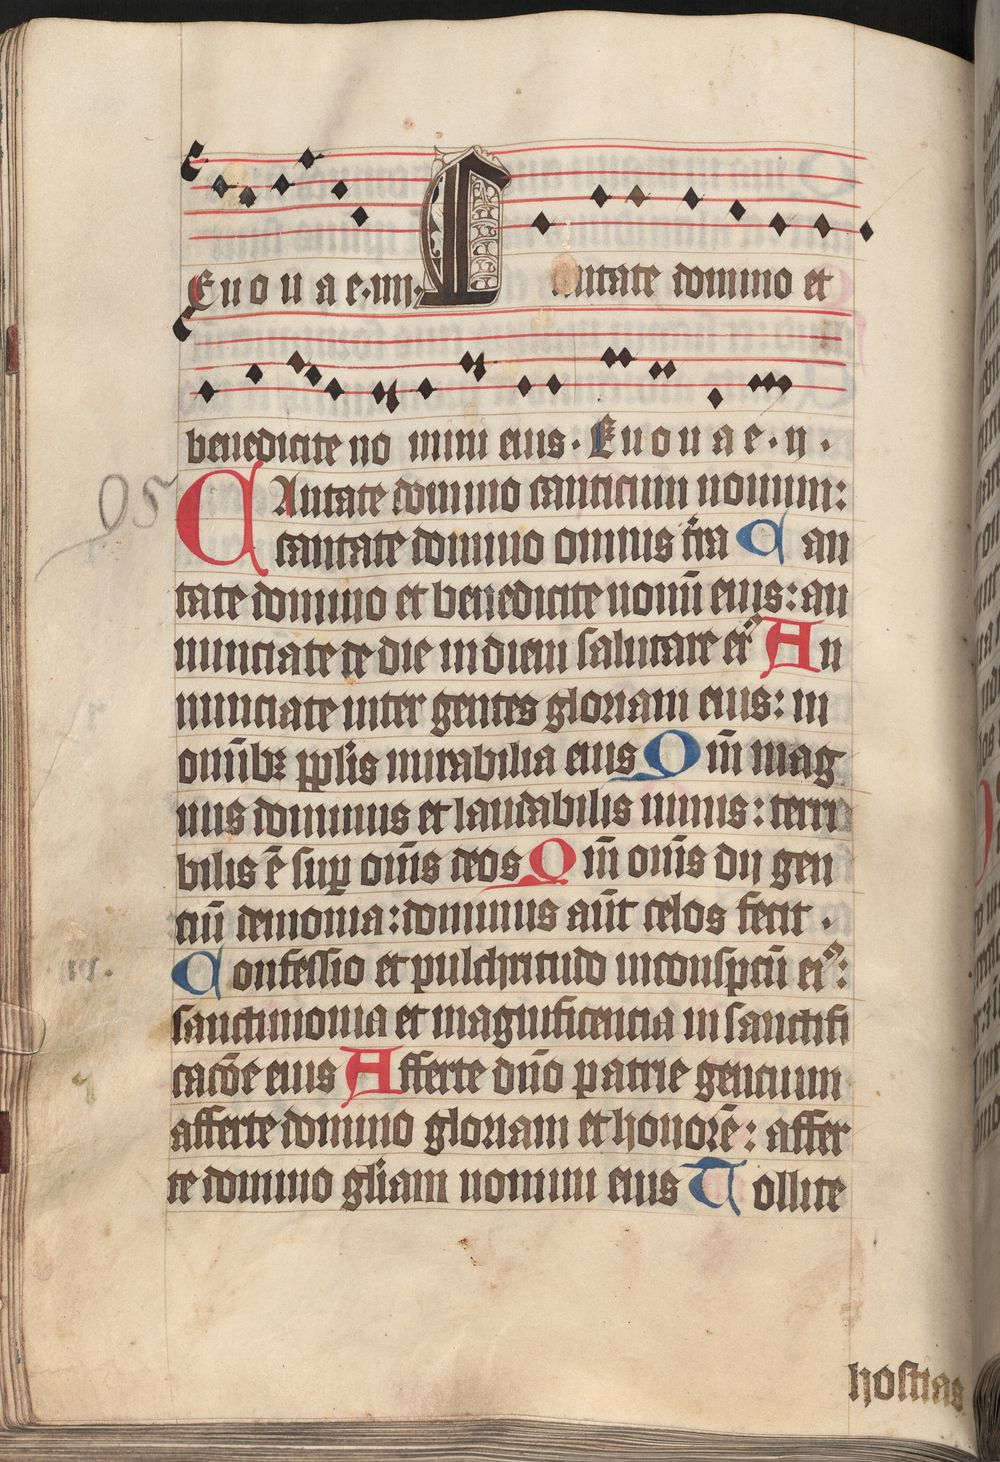 Euouae.iiii. Cantate domino et
benedicite no mini eius. Euouae.ii.
95
CAntate domino canticum nouum:
cantate domino omnis t̄ra Can
tate domino et benedicite nomī eius: an
nunciate de die in diem salutare eiꝰ An
nunciate inter gentes gloriam eius: in
om̄ibꝫ pp̄lis mirabilia eius Qm̄ mag
nus dominus et laudabilis nimis: terri
bilis ē sup om̄s deos Qm̄ om̄s dij gen
ciū demonia: dominus aūt celos fecit.
Confessio et pulchritudo in conspcū eiꝰ:
sanctimonia et magnificencia in sanctifi
cacōe eius Afferte dn̄o patrie gencium
afferte domino gloriam et honorē: affer
te domino gl̄iam nomini eius Tollite
hostias